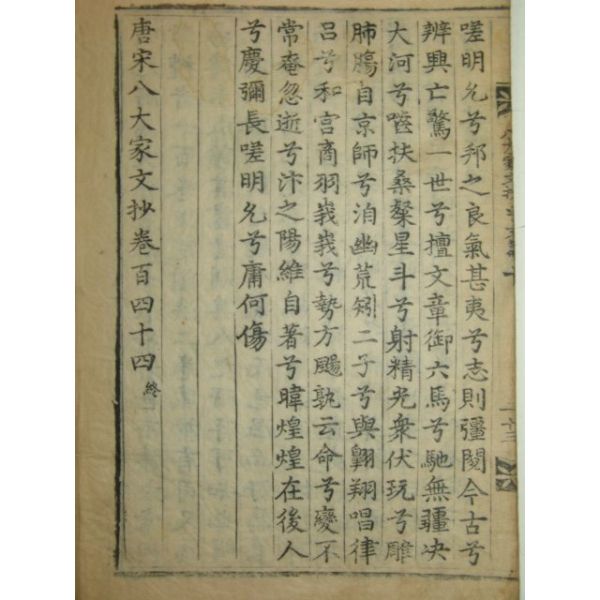 嗟明允兮邦之良氣甚夷兮志則彊閱今古兮
辨興亡驚一世兮擅文章御六馬兮馳無疆决
大河兮嚙扶桑粲星斗兮射精光衆伏玩兮雕
肺膓自京師兮洎幽荒矧二子兮與翺翔唱律
呂兮和宮商羽峩峩兮勢方颺孰云命兮變不
常奄忽逝兮汴之陽維自著兮暐煌煌在後人
兮慶彌長嗟明允兮庸何傷
唐宋八大家文抄卷百四十四 終